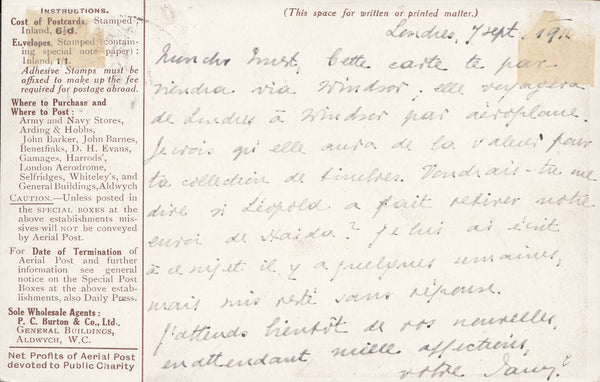 INSTRUCTIONS.
Cost of Postcards, Stamped
Inland, 6½d.
Envelopes, Stamped (contain-
ing special note paper):
Inland, 1/1.
Adhesive Stamps must be
affixed to make up the fee
required for postage abroad.
Where to Purchase and
Where to Post:
Army and Navy Stores,
Arding & Hobbs,
John Barker, John Barnes,
Benetfinks, D. H. Evans,
Gamages, Harrods',
London Aerodrome,
Selfridges, Whiteley's, and
General Buildings, Aldwych
CAUTION.—Unless posted in
the SPECIAL BOXES at the
above establishments mis-
sives will NOT be conveyed
by Aerial Post.
For Date of Termination of
Aerial Post and further
information see general
notice on the Special Post
Boxes at the above estab-
lishments, also Daily Press.
Sole Wholesale Agents:
P. C. Burton & Co., Ltd.,
GENERAL BUILDINGS,
ALDWYCH, W.C.
Net Profits of Aerial Post
devoted to Public Charity
(This space for written or printed matter.)
Londres, 7 sept. 1911
Cette carte te par-
viendra via Windsor; elle voyagera
de Londres à Windsor par aéroplane.
Je crois qu'elle aura de la valeur pour
ta collection de timbres. Voudrais-tu me
dire si Léopold a fait retirer notre
envoi de ? Je lui ai écrit
à ce sujet il y a quelques semaines,
mais suis resté sans réponse.
J'attends bientôt de vos nouvelles,
en attendant mille affections,
votre